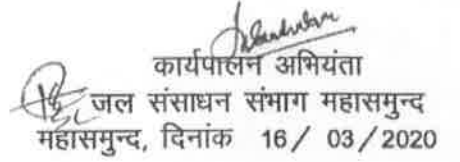 कार्यपालन अभियंता
जल संसाधन संभाग महासमुन्द
महासमुन्द, दिनांक 16/ 03/2020